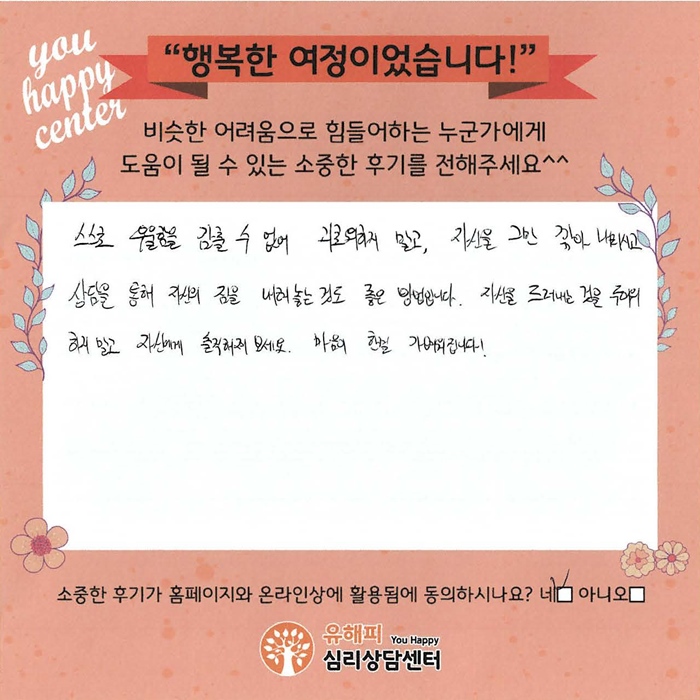 you
happy
center
“행복한 여정이었습니다!”
비슷한 어려움으로 힘들어하는 누군가에게
도움이 될 수 있는 소중한 후기를 전해주세요^^
스스로 우울함을 감출 수 없어 괴로워하지 말고, 자신을 그만 깎아 내리시고
상담을 통해 자신의 짐을 내려 놓는 것도 좋은 방법입니다. 자신을 드러내는 것을 두려워
하지 말고 자신에게 솔직해져 보세요. 마음이 한결 가벼워집니다!
소중한 후기가 홈페이지와 온라인상에 활용됨에 동의하시나요? 네 아니오
유해피 You Happy
심리상담센터